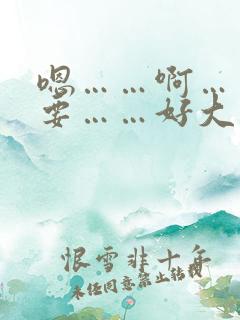 嗯……啊…
要……好大
恨雪非十年
未经同意禁止转载